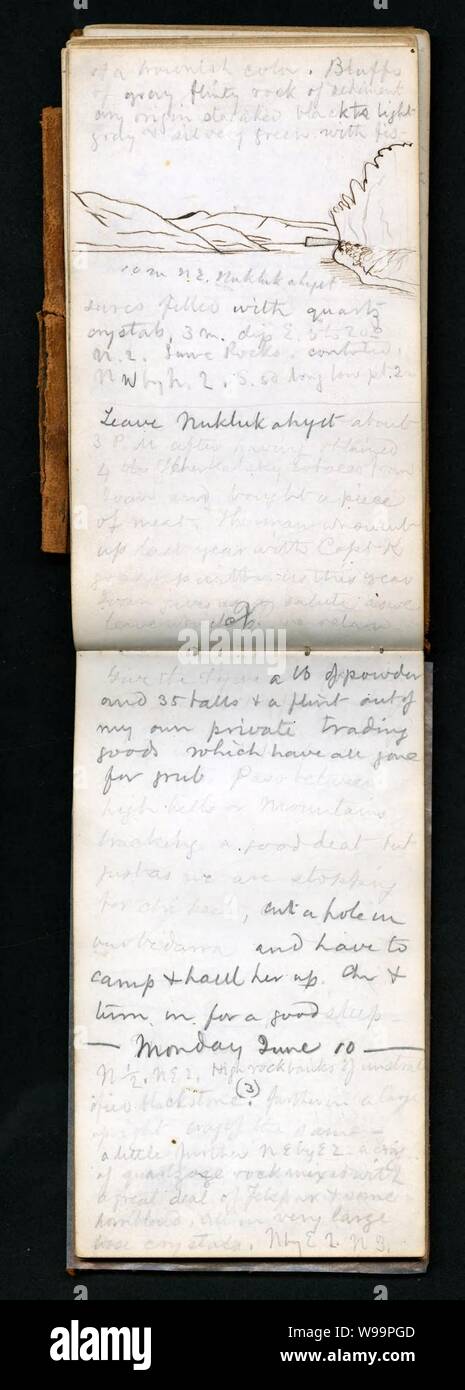 of a brownish color. Bluffs
of gray flinty rock of sediment
ary origin streaked black light
gray & silvery green with fis-
10 m N.E. Nuklukahyet
sures filled with quartz
crystals, 3 m. dip E. 5 to 20°
N. 2. Same Rocks. contorted.
N W by N. 2. S. 50 long low pt. 2
Leave Nuklukahyet about
3 P.M. after having obtained
4 lbs tobacco from
Ivan and bought a piece
of meat. The man who went
up last year with Capt. K
goes up with us this year
Ivan gives us a salute as we
leave which we return
Give the a lb of powder
and 35 balls & a flint out of
my own private trading
goods which have all gone
for grub. Pass between
high hills or Mountains
tracking a good deal but
just as we are stopping
for, cut a hole in
our bidarra and have to
camp & haul her up. Chi &
turn in for a good sleep
— Monday June 10 —
N 1/2. N E 2. High rock banks of
black stone. (3) further on a large
upright crag of the same —
a little further N E by E 2 a crag
of quartzose rock mixed with
a great deal of felspar & some
hornblende. all in very large
loose crystals. N by E 2. N 3.
alamy
a
alamy
Image ID: W99PGD
www.alamy.com